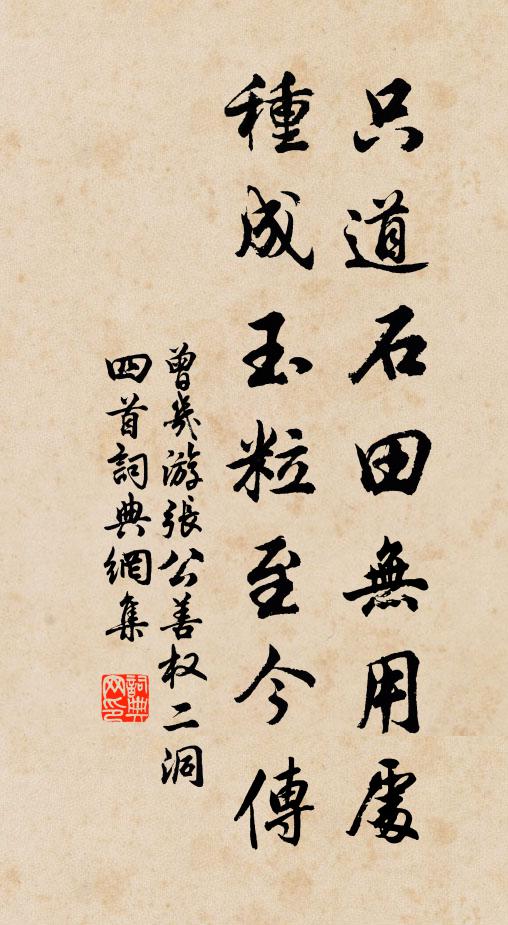 只道石田無用處
種成玉粒至今傳
曾幾游張公善权二洞
四首詞典網集
詞典网印